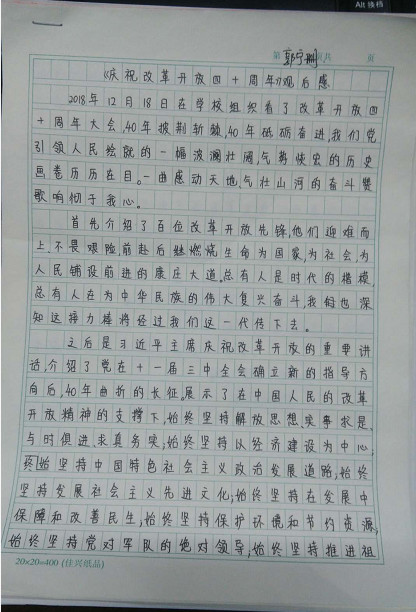 Alt 换档
第 页共 页
《庆祝改革开放四十周年》观后感
2018年12月18日在学校组织看了改革开放四
十周年大会,40年披荆斩棘,40年砥砺奋进,我们党
引领人民绘就的一幅波澜壮阔,气势恢宏的历史
画卷历历在目。一曲感动天地,气壮山河的奋斗赞
歌响彻于我心。
首先介绍了百位改革开放先锋,他们迎难而
上,不畏艰险,前赴后继燃烧生命为国家,为社会为
人民铺设前进的康庄大道。总有人是时代的楷模,
总有人在为中华民族的伟大复兴奋斗,我们也深
知这接力棒将经过我们这一代传下去。
之后是习近平主席庆祝改革开放的重要讲
话,介绍了党在十一届三中全会确立新的指导方
向后,40年曲折的长征。展示了在中国人民的改革
开放精神的支撑下,始终坚持解放思想,实事求是,
与时俱进,求真务实;始终坚持以经济建设为中心,
始终坚持中国特色社会主义政治发展道路,始终
坚持发展社会主义先进文化;始终坚持在发展中
保障和改善民生;始终坚持保护环境和节约资源,
始终坚持党对军队的绝对领导,始终坚持推进祖
20×20=400 (佳兴纸品)